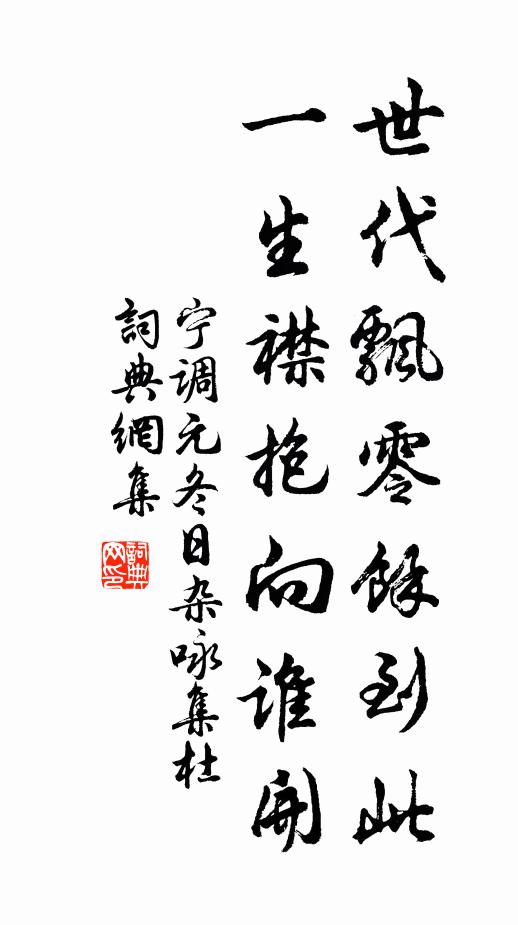 世代飄零餘到此
一生襟抱向誰開
宁调元冬日杂咏集杜
詞典網集
詞典
网印